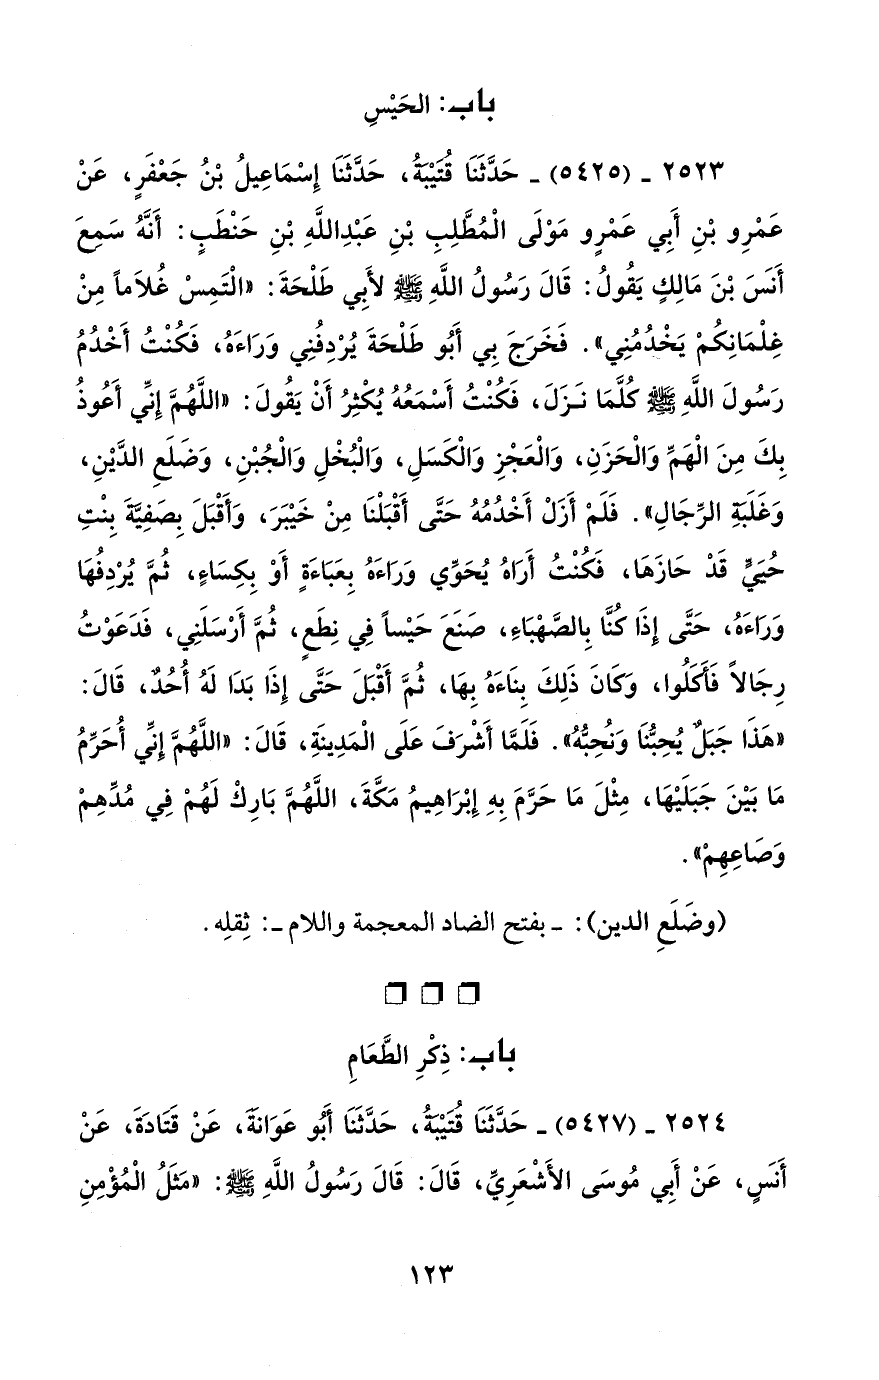 باب: الحَيْسِ
٢٥٢٣ ـ (٥٤٢٥) ـ حَدَّثَنَا قُتَيْبَةُ، حَدَّثَنَا إِسْمَاعِيلُ بْنُ جَعْفَرٍ، عَنْ
عَمْرِو بْنِ أَبِي عَمْرٍو مَوْلَى الْمُطَّلِبِ بْنِ عَبْدِاللَّهِ بْنِ حَنْطَبٍ: أَنَّهُ سَمِعَ
أَنَسَ بْنَ مَالِكٍ يَقُولُ: قَالَ رَسُولُ اللَّهِ ﷺ لأَبِي طَلْحَةَ: «الْتَمِسْ غُلاَماً مِنْ
غِلْمَانِكُمْ يَخْدُمُنِي». فَخَرَجَ بِي أَبُو طَلْحَةَ يُرْدِفُنِي وَرَاءَهُ، فَكُنْتُ أَخْدُمُ
رَسُولَ اللَّهِ ﷺ كُلَّمَا نَزَلَ، فَكُنْتُ أَسْمَعُهُ يُكْثِرُ أَنْ يَقُولَ: «اللَّهُمَّ إِنِّي أَعُوذُ
بِكَ مِنَ الْهَمِّ وَالْحَزَنِ، وَالْعَجْزِ وَالْكَسَلِ، وَالْبُخْلِ وَالْجُبْنِ، وَضَلَعِ الدَّيْنِ،
وَغَلَبَةِ الرِّجَالِ». فَلَمْ أَزَلْ أَخْدُمُهُ حَتَّى أَقْبَلْنَا مِنْ خَيْبَرَ، وَأَقْبَلَ بِصَفِيَّةَ بِنْتِ
حُيَيٍّ قَدْ حَازَهَا، فَكُنْتُ أَرَاهُ يُحَوِّي وَرَاءَهُ بِعَبَاءَةٍ أَوْ بِكِسَاءٍ، ثُمَّ يُرْدِفُهَا
وَرَاءَهُ، حَتَّى إِذَا كُنَّا بِالصَّهْبَاءِ، صَنَعَ حَيْساً فِي نِطَعٍ، ثُمَّ أَرْسَلَنِي، فَدَعَوْتُ
رِجَالاً فَأَكَلُوا، وَكَانَ ذَلِكَ بِنَاءَهُ بِهَا، ثُمَّ أَقْبَلَ حَتَّى إِذَا بَدَا لَهُ أُحُدٌ، قَالَ:
«هَذَا جَبَلٌ يُحِبُّنَا وَنُحِبُّهُ». فَلَمَّا أَشْرَفَ عَلَى الْمَدِينَةِ، قَالَ: «اللَّهُمَّ إِنِّي أُحَرِّمُ
مَا بَيْنَ جَبَلَيْهَا، مِثْلَ مَا حَرَّمَ بِهِ إِبْرَاهِيمُ مَكَّةَ، اللَّهُمَّ بَارِكْ لَهُمْ فِي مُدِّهِمْ
وَصَاعِهِمْ».
(وضَلَعِ الدين): ـ بفتح الضاد المعجمة واللام ـ: ثِقله.
باب: ذِكْرِ الطَّعَامِ
٢٥٢٤ ـ (٥٤٢٧) ـ حَدَّثَنَا قُتَيْبَةُ، حَدَّثَنَا أَبُو عَوَانَةَ، عَنْ قَتَادَةَ، عَنْ
أَنَسٍ، عَنْ أَبِي مُوسَى الأَشْعَرِيِّ، قَالَ: قَالَ رَسُولُ اللَّهِ ﷺ: «مَثَلُ الْمُؤْمِنِ
١٢٣